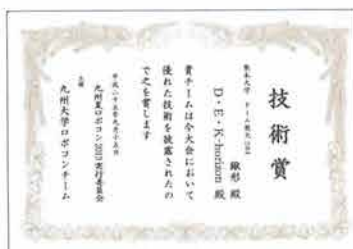 技術賞
熊本大学
鍬形 殿
D・E・K-horizon 殿
貴チームは今大会において
優れた技術を披露されたの
で之を賞します
平成二十五年九月十五日
九州夏ロボコン2013実行委員会
主催
九州大学ロボコンチーム